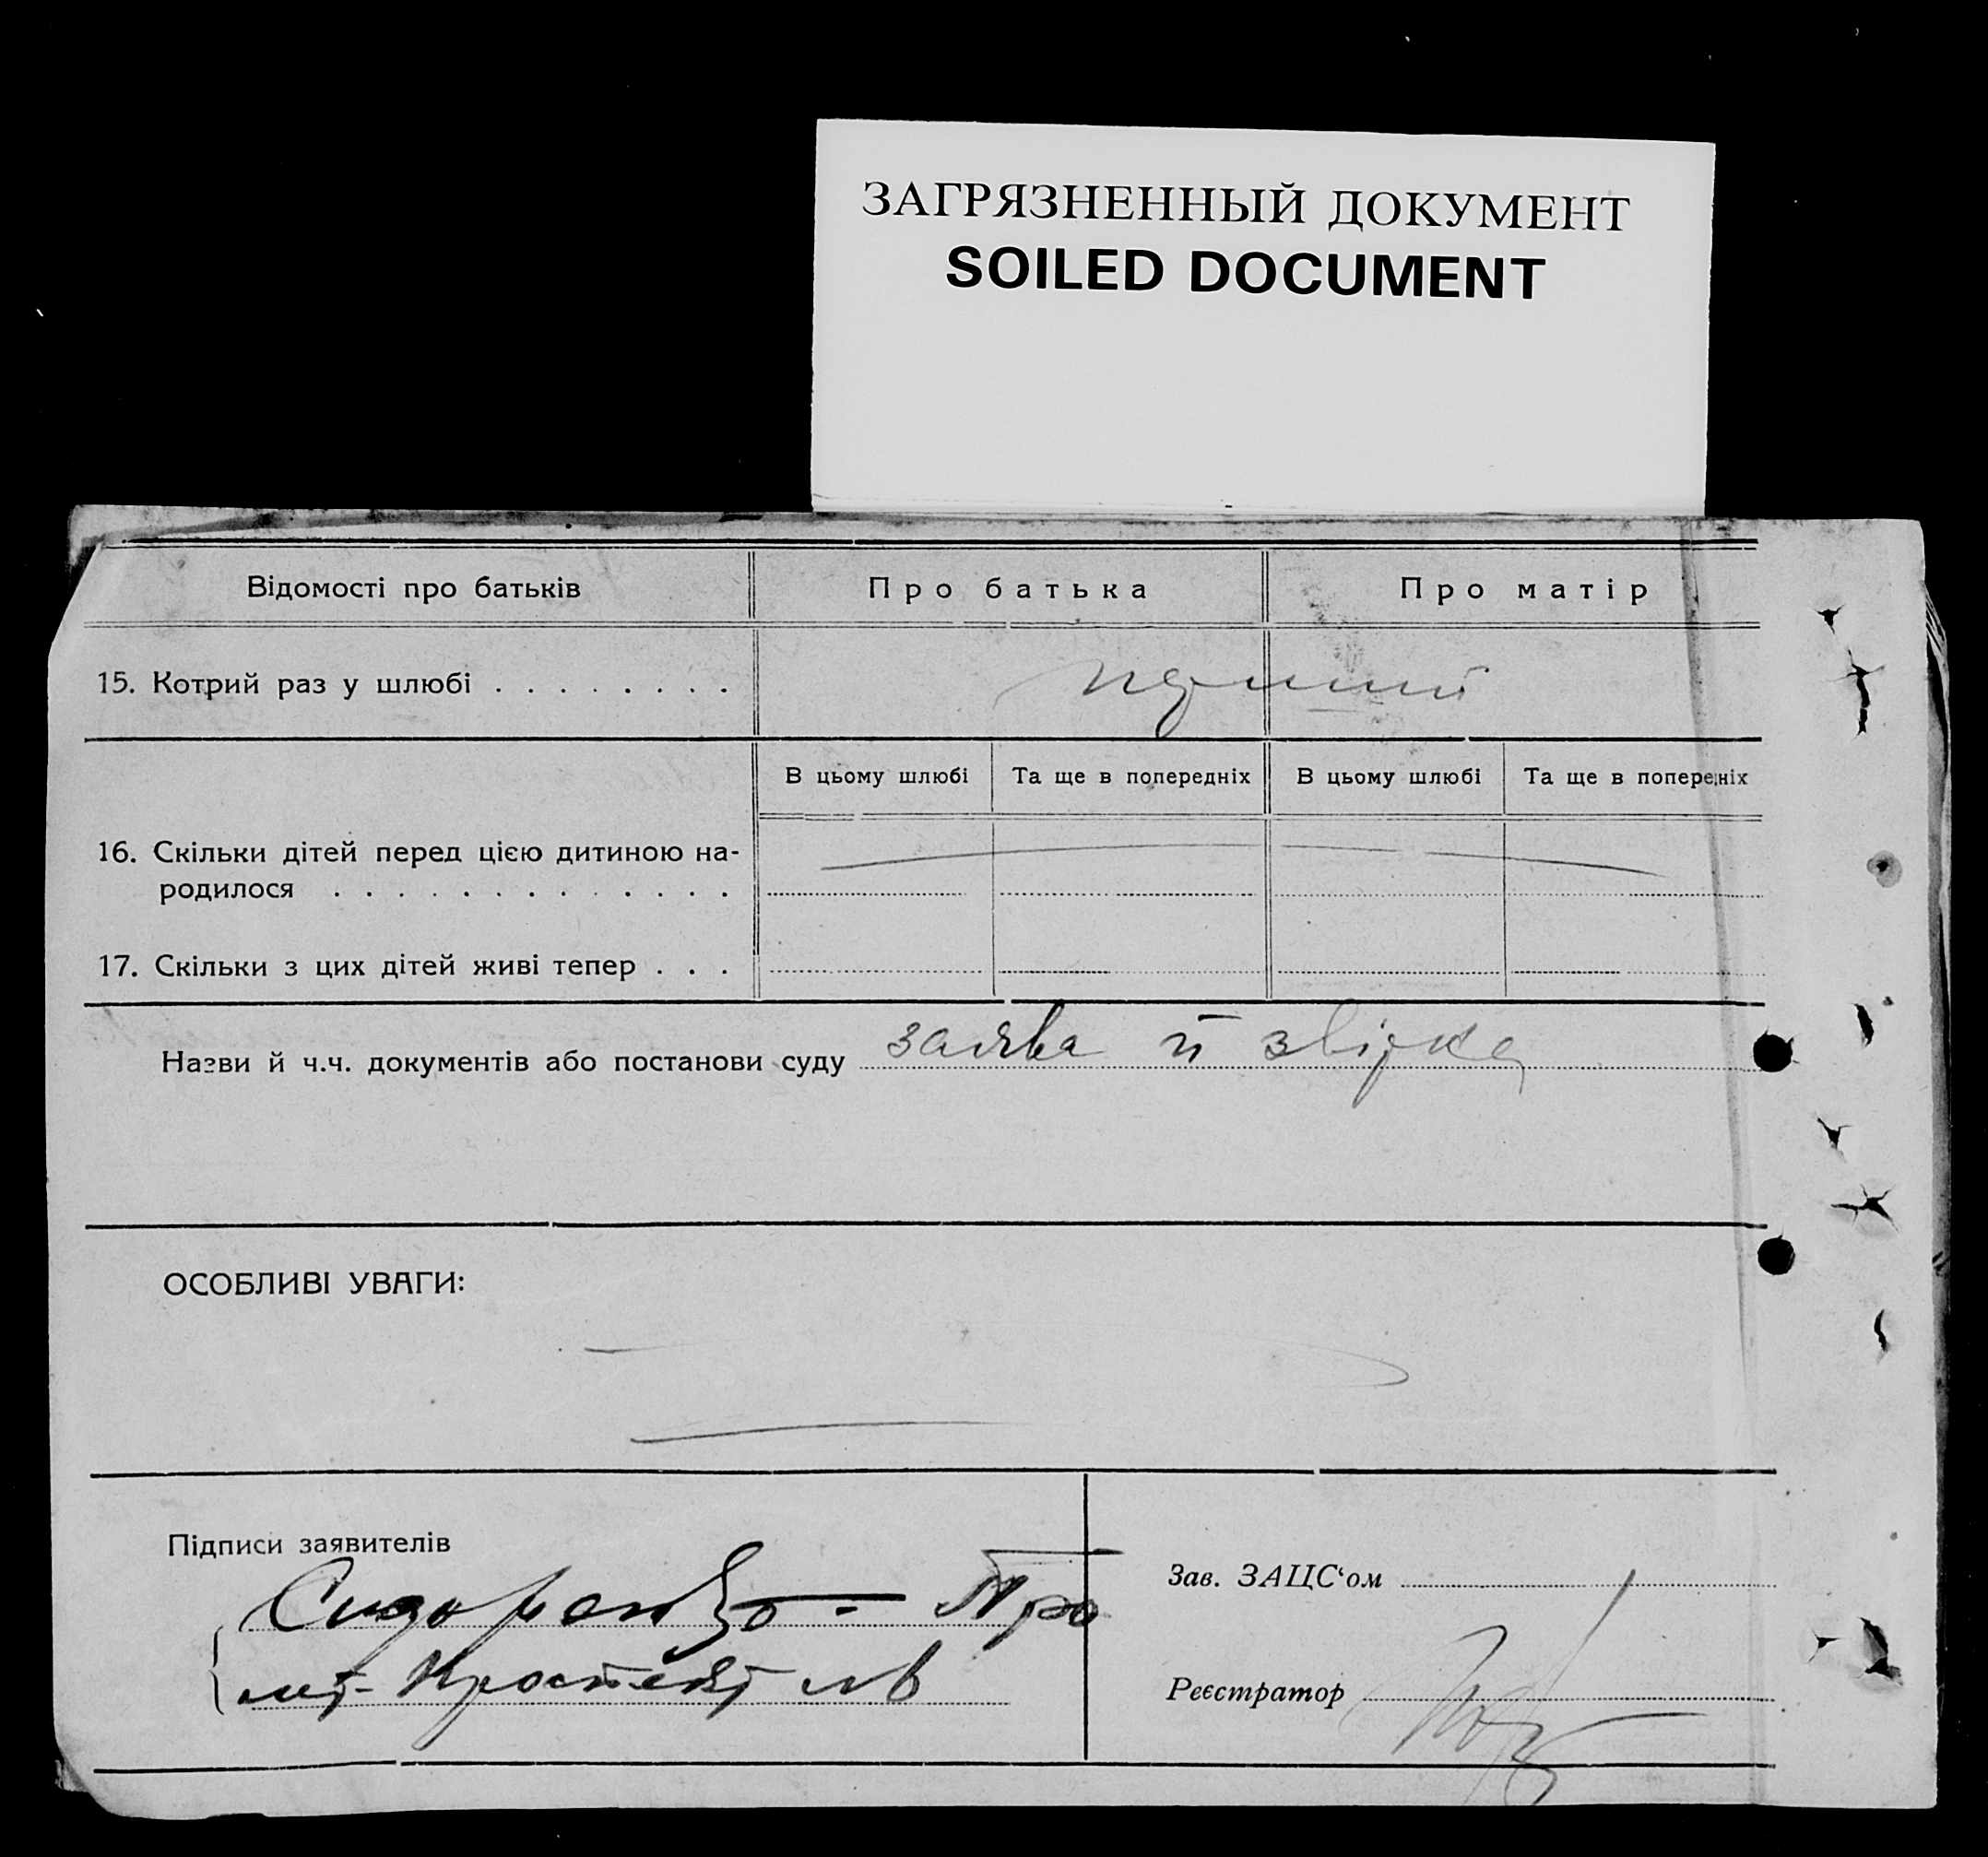 ЗАГРЯЗНЕННЫЙ ДОКУМЕНТ
SOILED DOCUMENT
Відомості про батьків Про батька Про матір
15. Котрий раз у шлюбі . . . . . . . . перший
В цьому шлюбі Та ще в попередніх В цьому шлюбі Та ще в попередніх
16. Скільки дітей перед цією дитиною на-
родилося . . . . . . . . . . . . .
17. Скільки з цих дітей живі тепер . . .
Назви й ч.ч. документів або постанови суду заява й звірка
ОСОБЛИВІ УВАГИ:
Підписи заявителів
Зав. ЗАЦС‘ом
Сидоренко - Про
Реєстратор